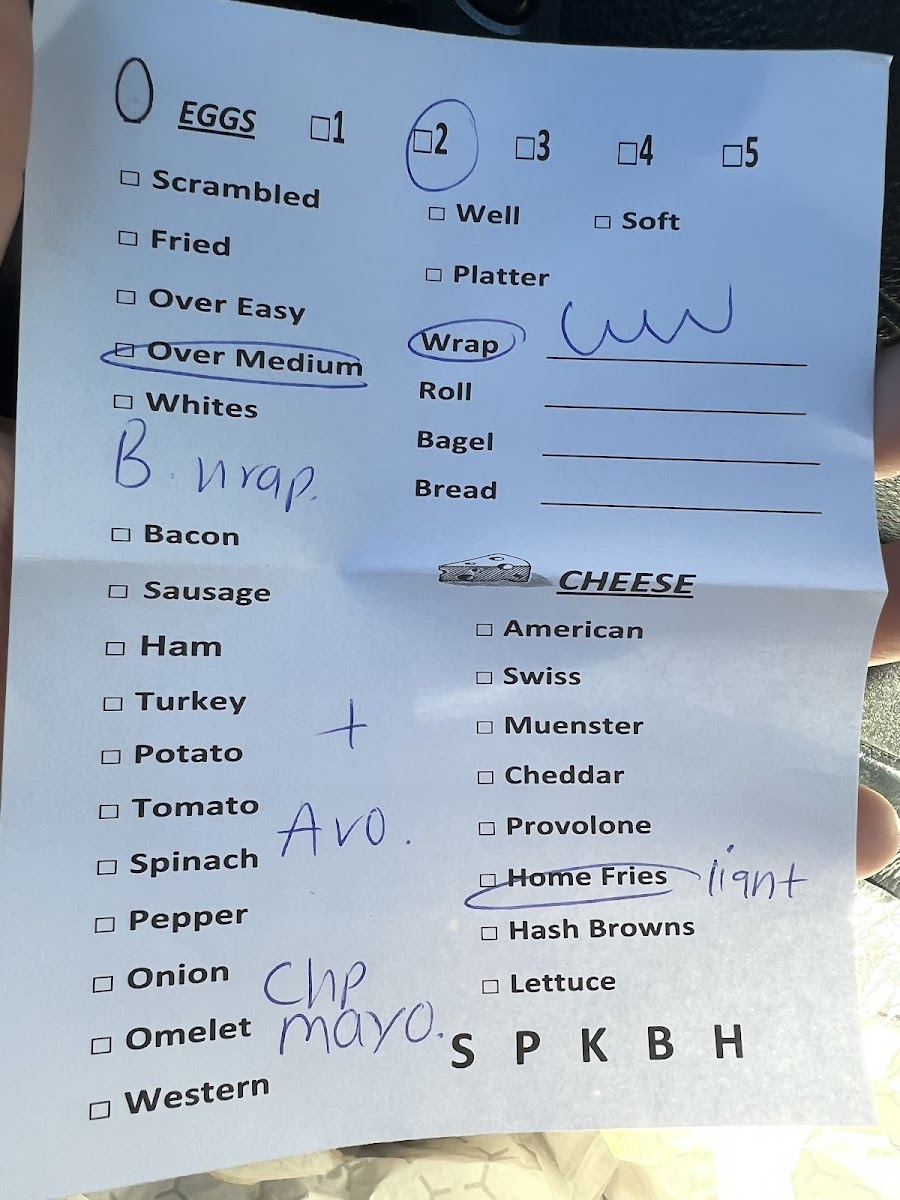 EGGS □1 □2 □3 □4 □5
□ Scrambled
□ Well □ Soft
□ Fried
□ Platter
□ Over Easy
□ Over Medium
Wrap
□ Whites
Roll
Bagel
B. wrap.
Bread
□ Bacon
□ Sausage
□ Ham
□ Turkey
+
□ Potato
□ Tomato
Avo.
□ Spinach
□ Pepper
□ Onion
Chp
mayo.
□ Omelet
□ Western
CHEESE
□ American
□ Swiss
□ Muenster
□ Cheddar
□ Provolone
□ Home Fries light
□ Hash Browns
□ Lettuce
S P K B H